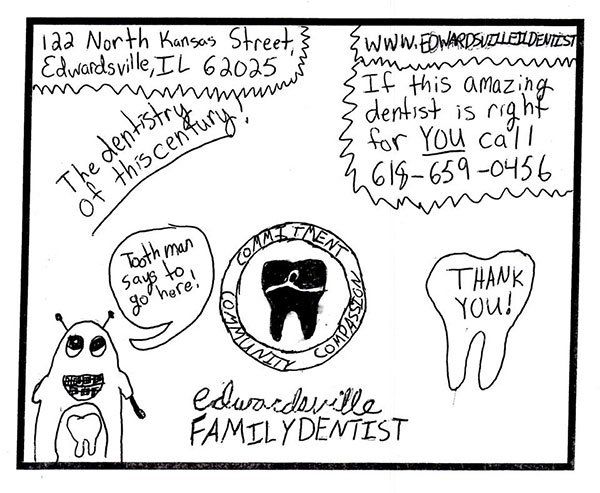 122 North Kansas Street,
Edwardsville, IL 62025
WWW.EDWARDSVILLEILDENTIST
If this amazing
dentist is right
for YOU call
618-659-0456
The dentistry
of this century!
Tooth man
says to
go here!
COMMITMENT
COMMUNITY COMPASSION
THANK
YOU!
edwardsville
FAMILY DENTIST